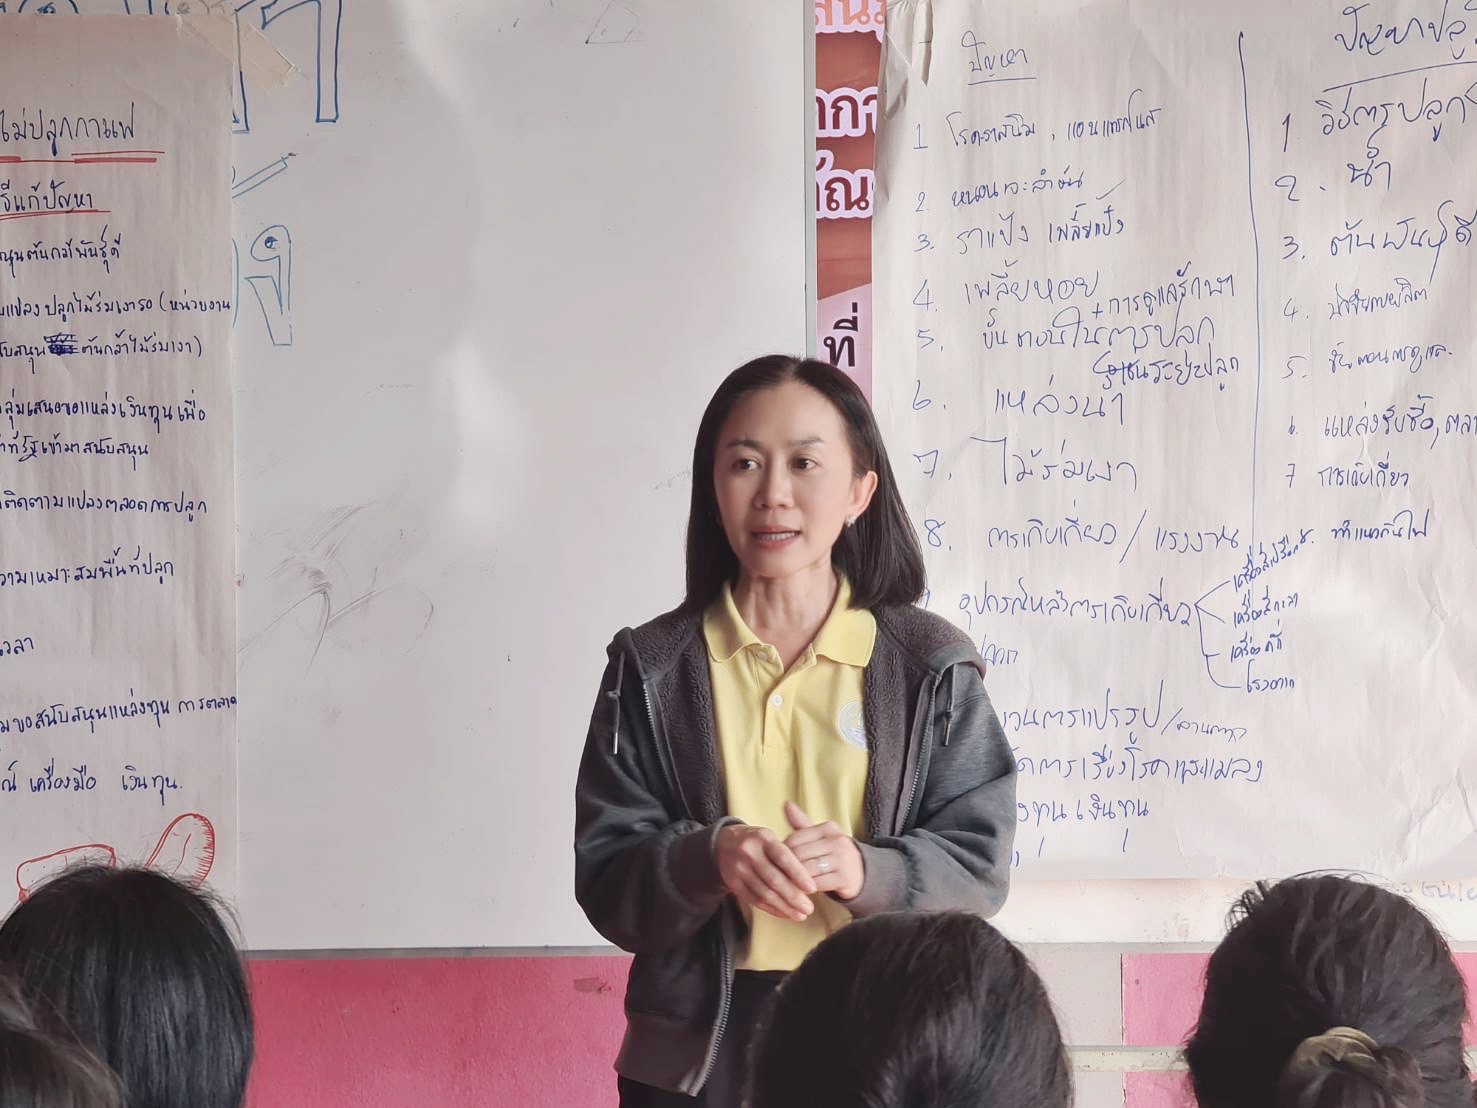 ไม่ปลูกกาแฟ
ธีแก้ปัญหา
นุนต้นกล้าพันธุ์ดี
แปลงปลูกไม้ร่มเงารอ (หน่วยงาน
ับสนุน ต้นกล้าไม้ร่มเงา)
ลุ่มเสนอขอแหล่งเงินทุนเพื่อ
รัฐเข้ามาสนับสนุน
ติดตามแปลงตลอดการปลูก
วามเหมาะสมพื้นที่ปลูก
เวลา
ขอสนับสนุนแหล่งทุน การตลาด
ณ์ เครื่องมือ เงินทุน.
ที่
ปัญหา
1 โรคราสนิม, แอนแทรคโนส
2. หนอนเจาะลำต้น
3. ราแป้ง เพลี้ยแป้ง
4. เพลี้ยหอย
5. ขั้นตอนในการปลูก
+ การดูแลรักษา
ระยะปลูก
6. แหล่งน้ำ
7. ไม้ร่มเงา
8. การเก็บเกี่ยว / แรงงาน
อุปกรณ์หลังการเก็บเกี่ยว
เครื่องสีเปลือก
เครื่องสีกะลา
เครื่องคั่ว
โรงตาก
วนการแปรรูป / ลานตาก
ัดการเรื่องโรคและแมลง
งทุน เงินทุน
ปัญหาปลู
1. วิธีการปลูก
2. น้ำ
3. ต้นพันธุ์ดี
4. ปัจจัยการผลิต
5. ขั้นตอนการดูแล.
6. แหล่งรับซื้อ, ตลา
7 การเก็บเกี่ยว
8. ทำแนวกันไฟ